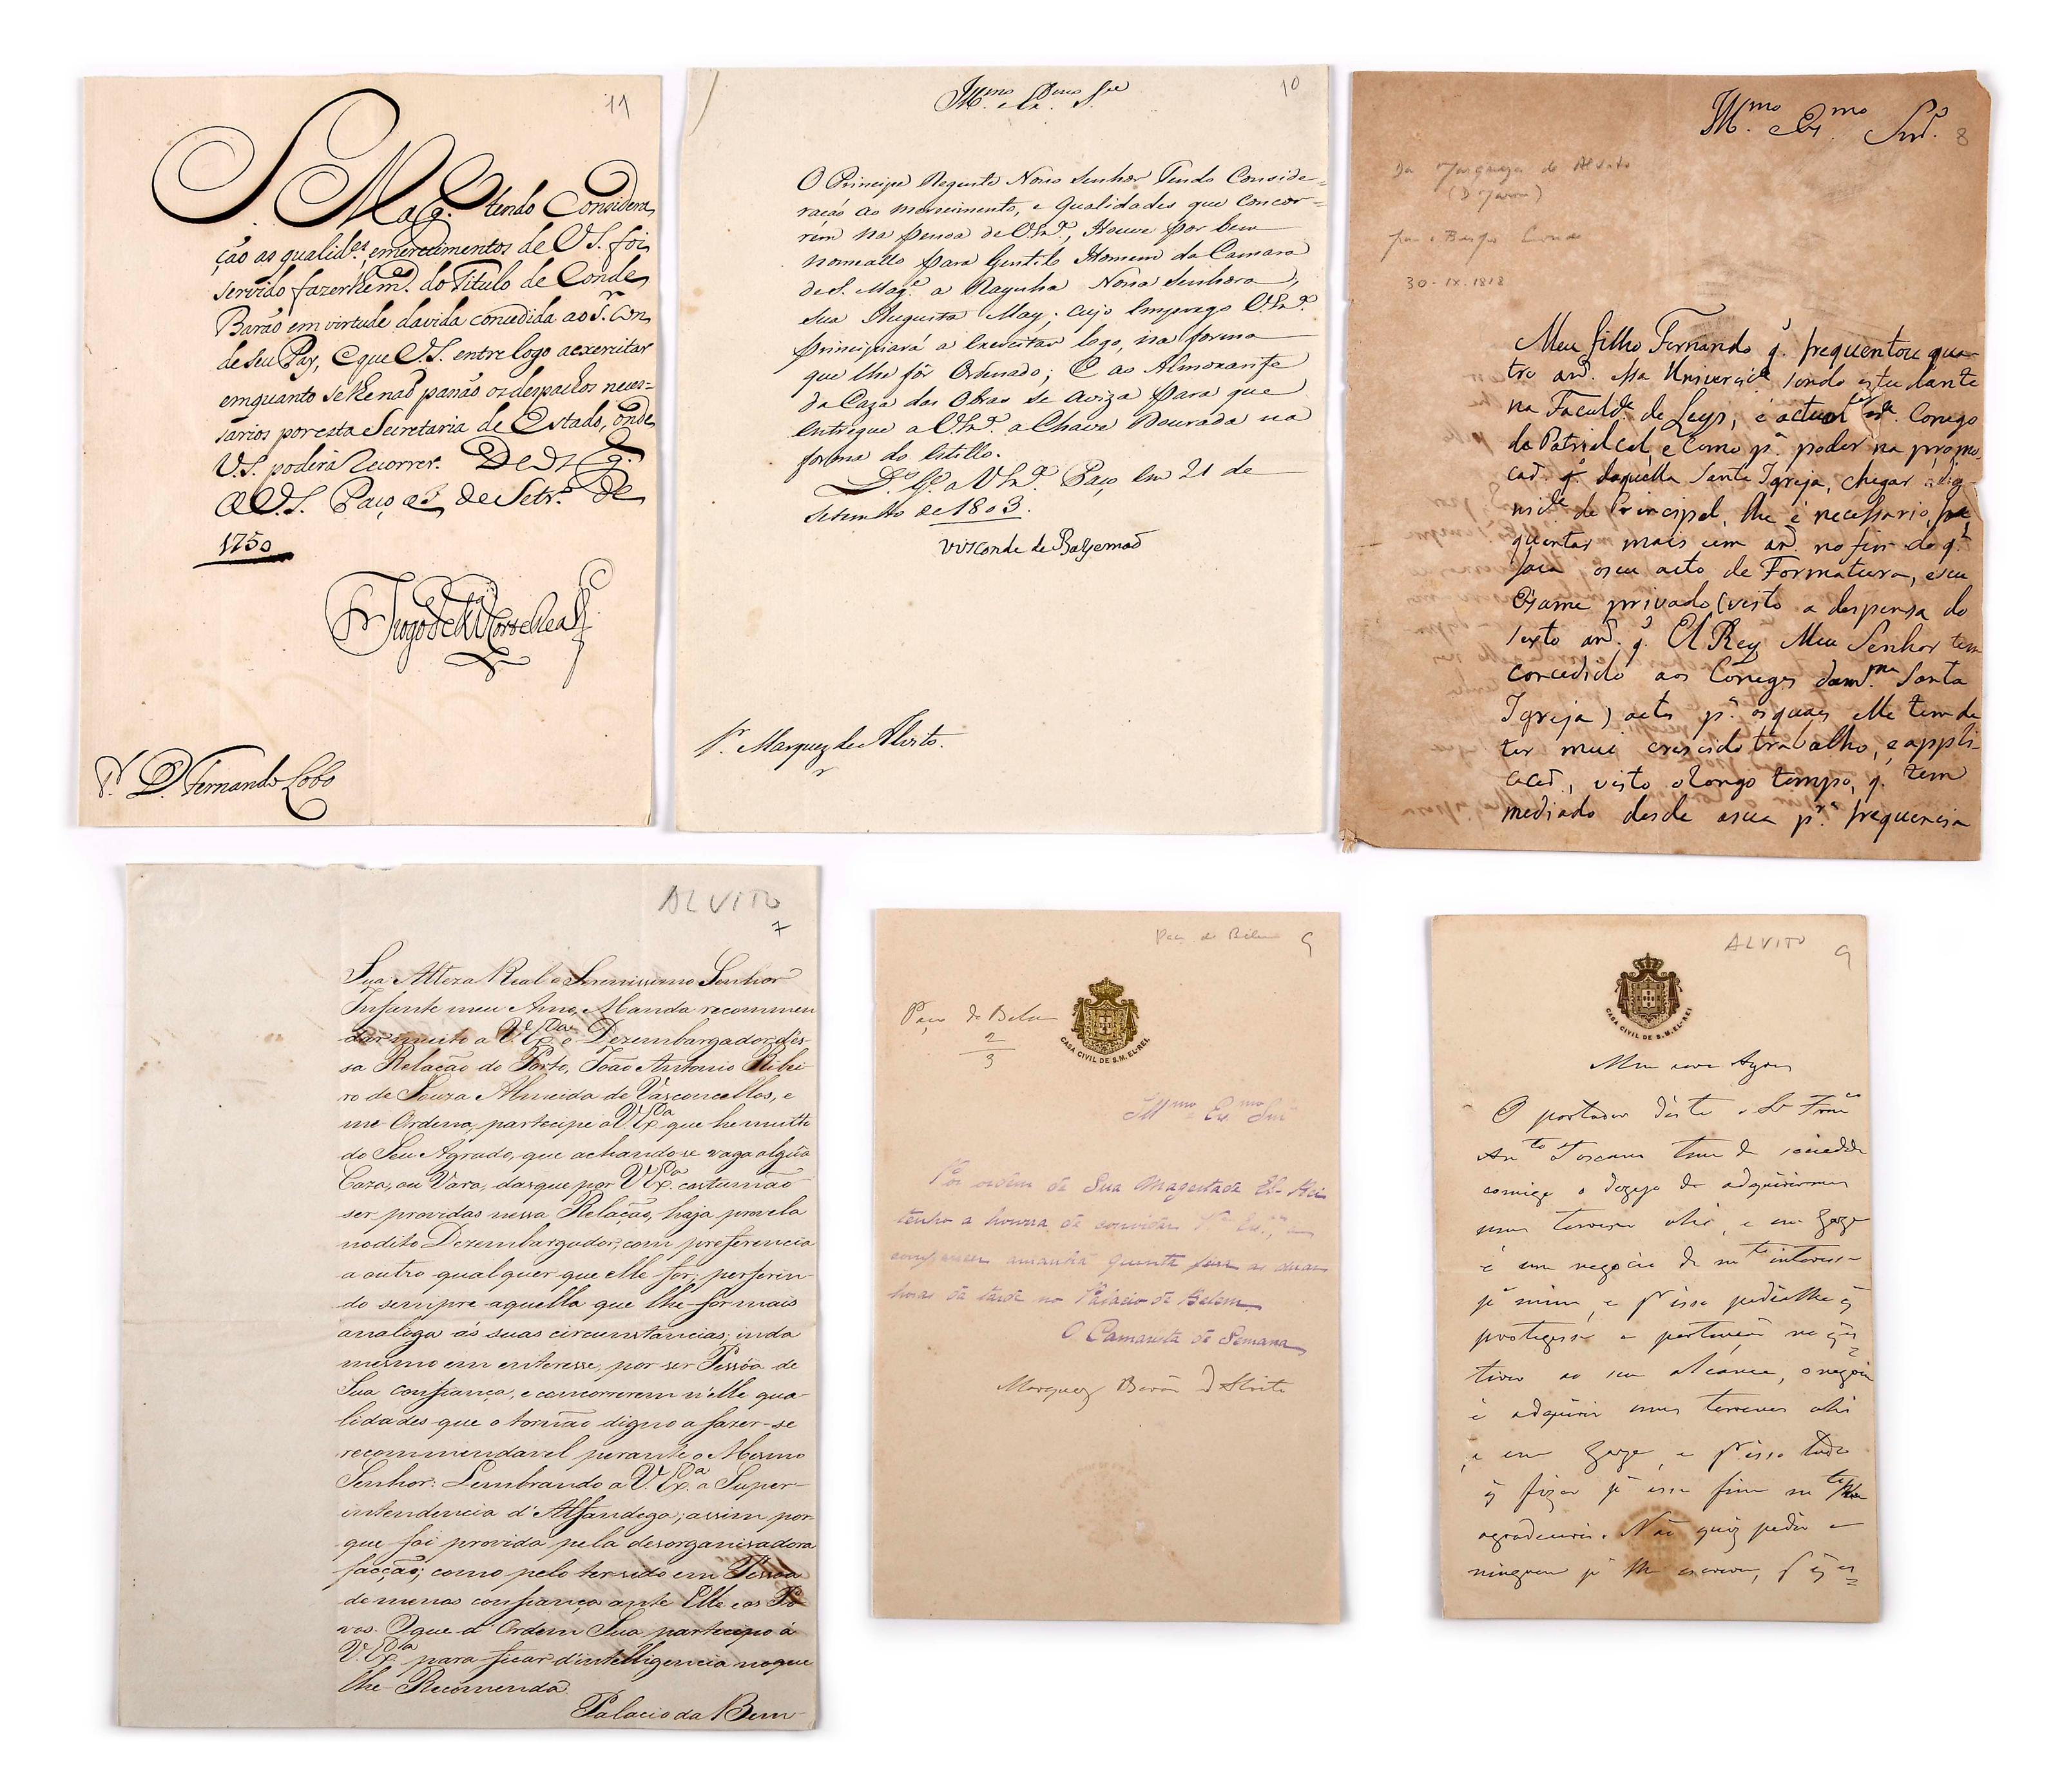 11
S. Mag.e tendo Considera
ção as qualid.es, emerecimentos de V.S. foi
servido fazerlhe m.ce do Titulo de Conde
Barão em virtude da vida concedida ao S.r Con
de seu Pay, e que V.S. entre logo a exercitar
emquanto se lhe naõ pasaõ os despachos neces-
sarios por esta Secretaria de Estado, onde
V.S. poderá recorrer. Deos G.
a V.S. Paço a 3 de Setr.o de
1750
Diogo de M.ça Corte Real
S.r D. Fernando Lobo
10
Ill.mo e Ex.mo Snr.
O Principe Regente Nosso Senhor Tendo Conside=
raçaõ ao merecimento, e Qualidades que concor=
rem na pessoa de V.Ex.a, Houve por bem
nomeallo para Gentil Homem da Camara
de S. Mag.e a Raynha Nossa Senhora,
Sua Augusta May; cujo Emprego V.Ex.a
principiará a Exercitar logo, na forma
que lhe fôr Ordenado; E ao Almoxarife
da Caza das Obras se aviza para que
entregue a V.Ex.a a Chave Dourada na
forma do Estillo.
D.s G.e a V.Ex.a Paço, em 21 de
Setembro de 1803.
Visconde de Balsemaõ
S.r Marquez de Alvito.
8
Ill.mo e Ex.mo Snr.
Da Marqueza de Alvito
30-IX-1818
Meu filho Fernando q. frequentou qua-
tro an.s na Univers.de sendo estudante
na Faculd.e de Leys, é actualm.te Conego
da Patriarcal, e como p.a poder na promo-
caõ q. daquella Santa Igreja, chegar á dig-
nid.e de Principal, lhe é necessario, fre
quentar mais um an. no fim do q.l
faça o seu acto de Formatura, e seu
Exame privado (visto a despensa do
sexto an. q. El Rey Meu Senhor tem
concedido aos Conegos da m.ma Santa
Igreja) actos p.a os quaes elle tem de
ter mui crescido trabalho, e appli-
cacaõ, visto o longo tempo, q. tem
mediado desde a sua p.ra frequencia
ALVITO
7
Sua Alteza Real o Serenissimo Senhor
Infante meu Amo, Manda recommen
dar muito a V. Ex.cia o Dezembargador d'es-
sa Relação do Porto, João Antonio Ribei-
ro de Souza Almeida de Vasconcellos, e
me Ordena, participe a V. Ex.a que he muito
do Seu Agrado, que achando-se vaga algũa
Caza, ou Vara, das que por V. Ex.a costumão
ser providas nessa Relação, haja provela
no dito Dezembargador, com preferencia
a outro qualquer que elle for; perferin-
do sempre aquella que lhe for mais
analoga ás suas circunstancias, inda
mesmo em enteresse, por ser Pessôa de
Sua confiança, e concorrerem n'elle qua-
lidades que o tornão digno a fazer-se
recommendavel perante o Mesmo
Senhor: Lembrando a V. Ex.a a Super-
intendencia d'Alfandega; assim por-
que foi provida pela desorganisadora
facção; como pelo ter sido em Pessoa
de menos confiança ante Elle e os Po
vos. O que d'Ordem Sua participo á
V. Ex.cia para ficar d'intelligencia no que
lhe Recomenda.
Palacio da Bem-
Paço de Belem 9
Paço de Belem
2
3
CASA CIVIL DE S.M. EL-REI.
Ill.mo e Ex.mo Snr
Por ordem de Sua Magestade El-Rei
tenho a honra de convidar V.a Ex.a, a
comparecer amanhã quinta feira as duas
horas da tarde no Palacio de Belem.
O Camarista de Semana
Marquez Barão d'Alvito
ALVITO 9
CASA CIVIL DE S.M. EL-REI
Meu caro Ayres
O portador d'este o Sr Fran.co
An.to Toscano tem de sociedde
comigo o dezejo de adquirirmos
uns terrenos ahi, e em Gaza
é um negocio de m.to interesse
p.a mim, e p.r isso pedia-lhe q
protegesse a pertenção no que
tiver ao seu alcance, o negocio
é adquirir uns terrenos ahi
e em Gaza, e p.r isso tudo
q fizer p.a esse fim m.to lhe
agradecerei. Não quiz pedir a
ninguem p.a lhe escrever,